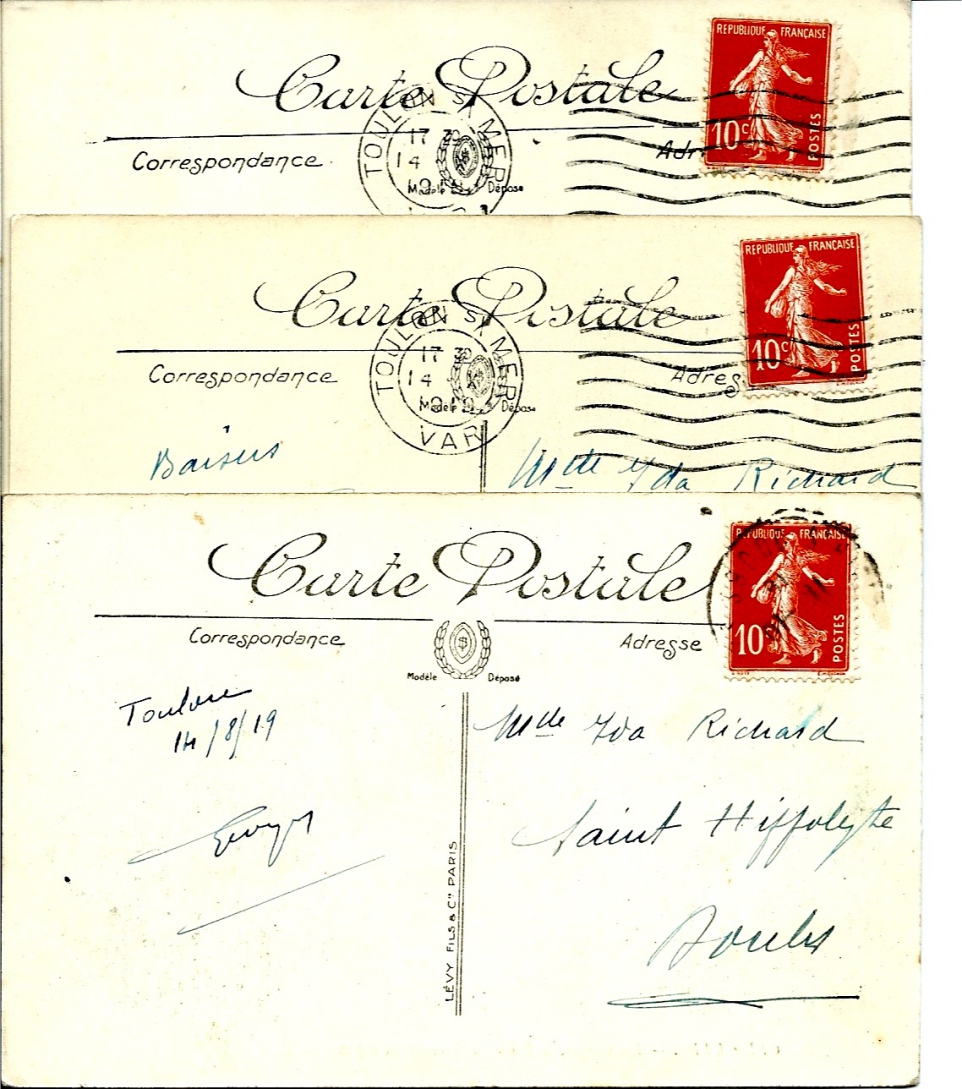 Carte Postale
RÉPUBLIQUE FRANÇAISE
10c
POSTES
Correspondance
Adr
TOULON S. MER
17 30
14
Modèle Déposé
Carte Postale
RÉPUBLIQUE FRANÇAISE
10c
POSTES
Correspondance
Adres
TOULON S. MER
17 30
14
1919
Modèle Déposé
VAR
Baisers
Mlle Ida Richard
Carte Postale
RÉPUBLIQUE FRANÇAISE
10c
POSTES
Correspondance
Adresse
Modèle Déposé
Toulon
14/8/19
Mlle Ida Richard
Georges
Saint Hippolyte
Doubs
LÉVY FILS & Cie PARIS